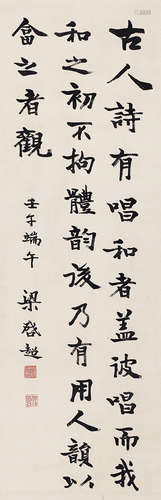 古人詩有唱和者蓋彼唱而我
和之初不拘體韻後乃有用人韻以
畣之者觀
壬午端午 梁啓超